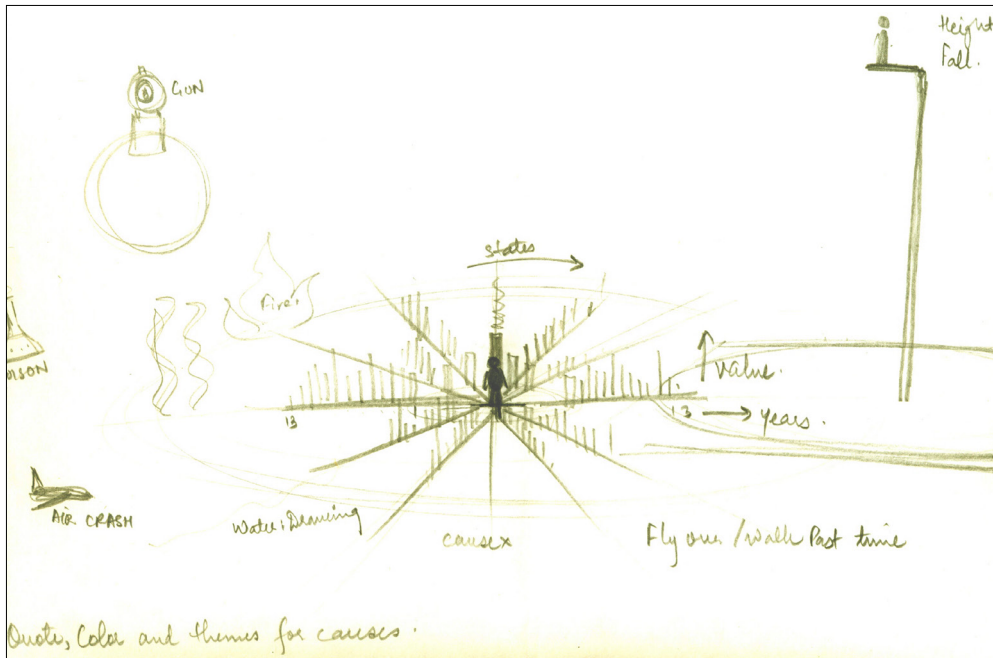 Height
Fall.
GUN
States
Fire.
OISON
value.
13
13 → years.
AIR CRASH
Water: Drowning
causex
Fly over / Walk Past time
Quote, Color and themes for causes.